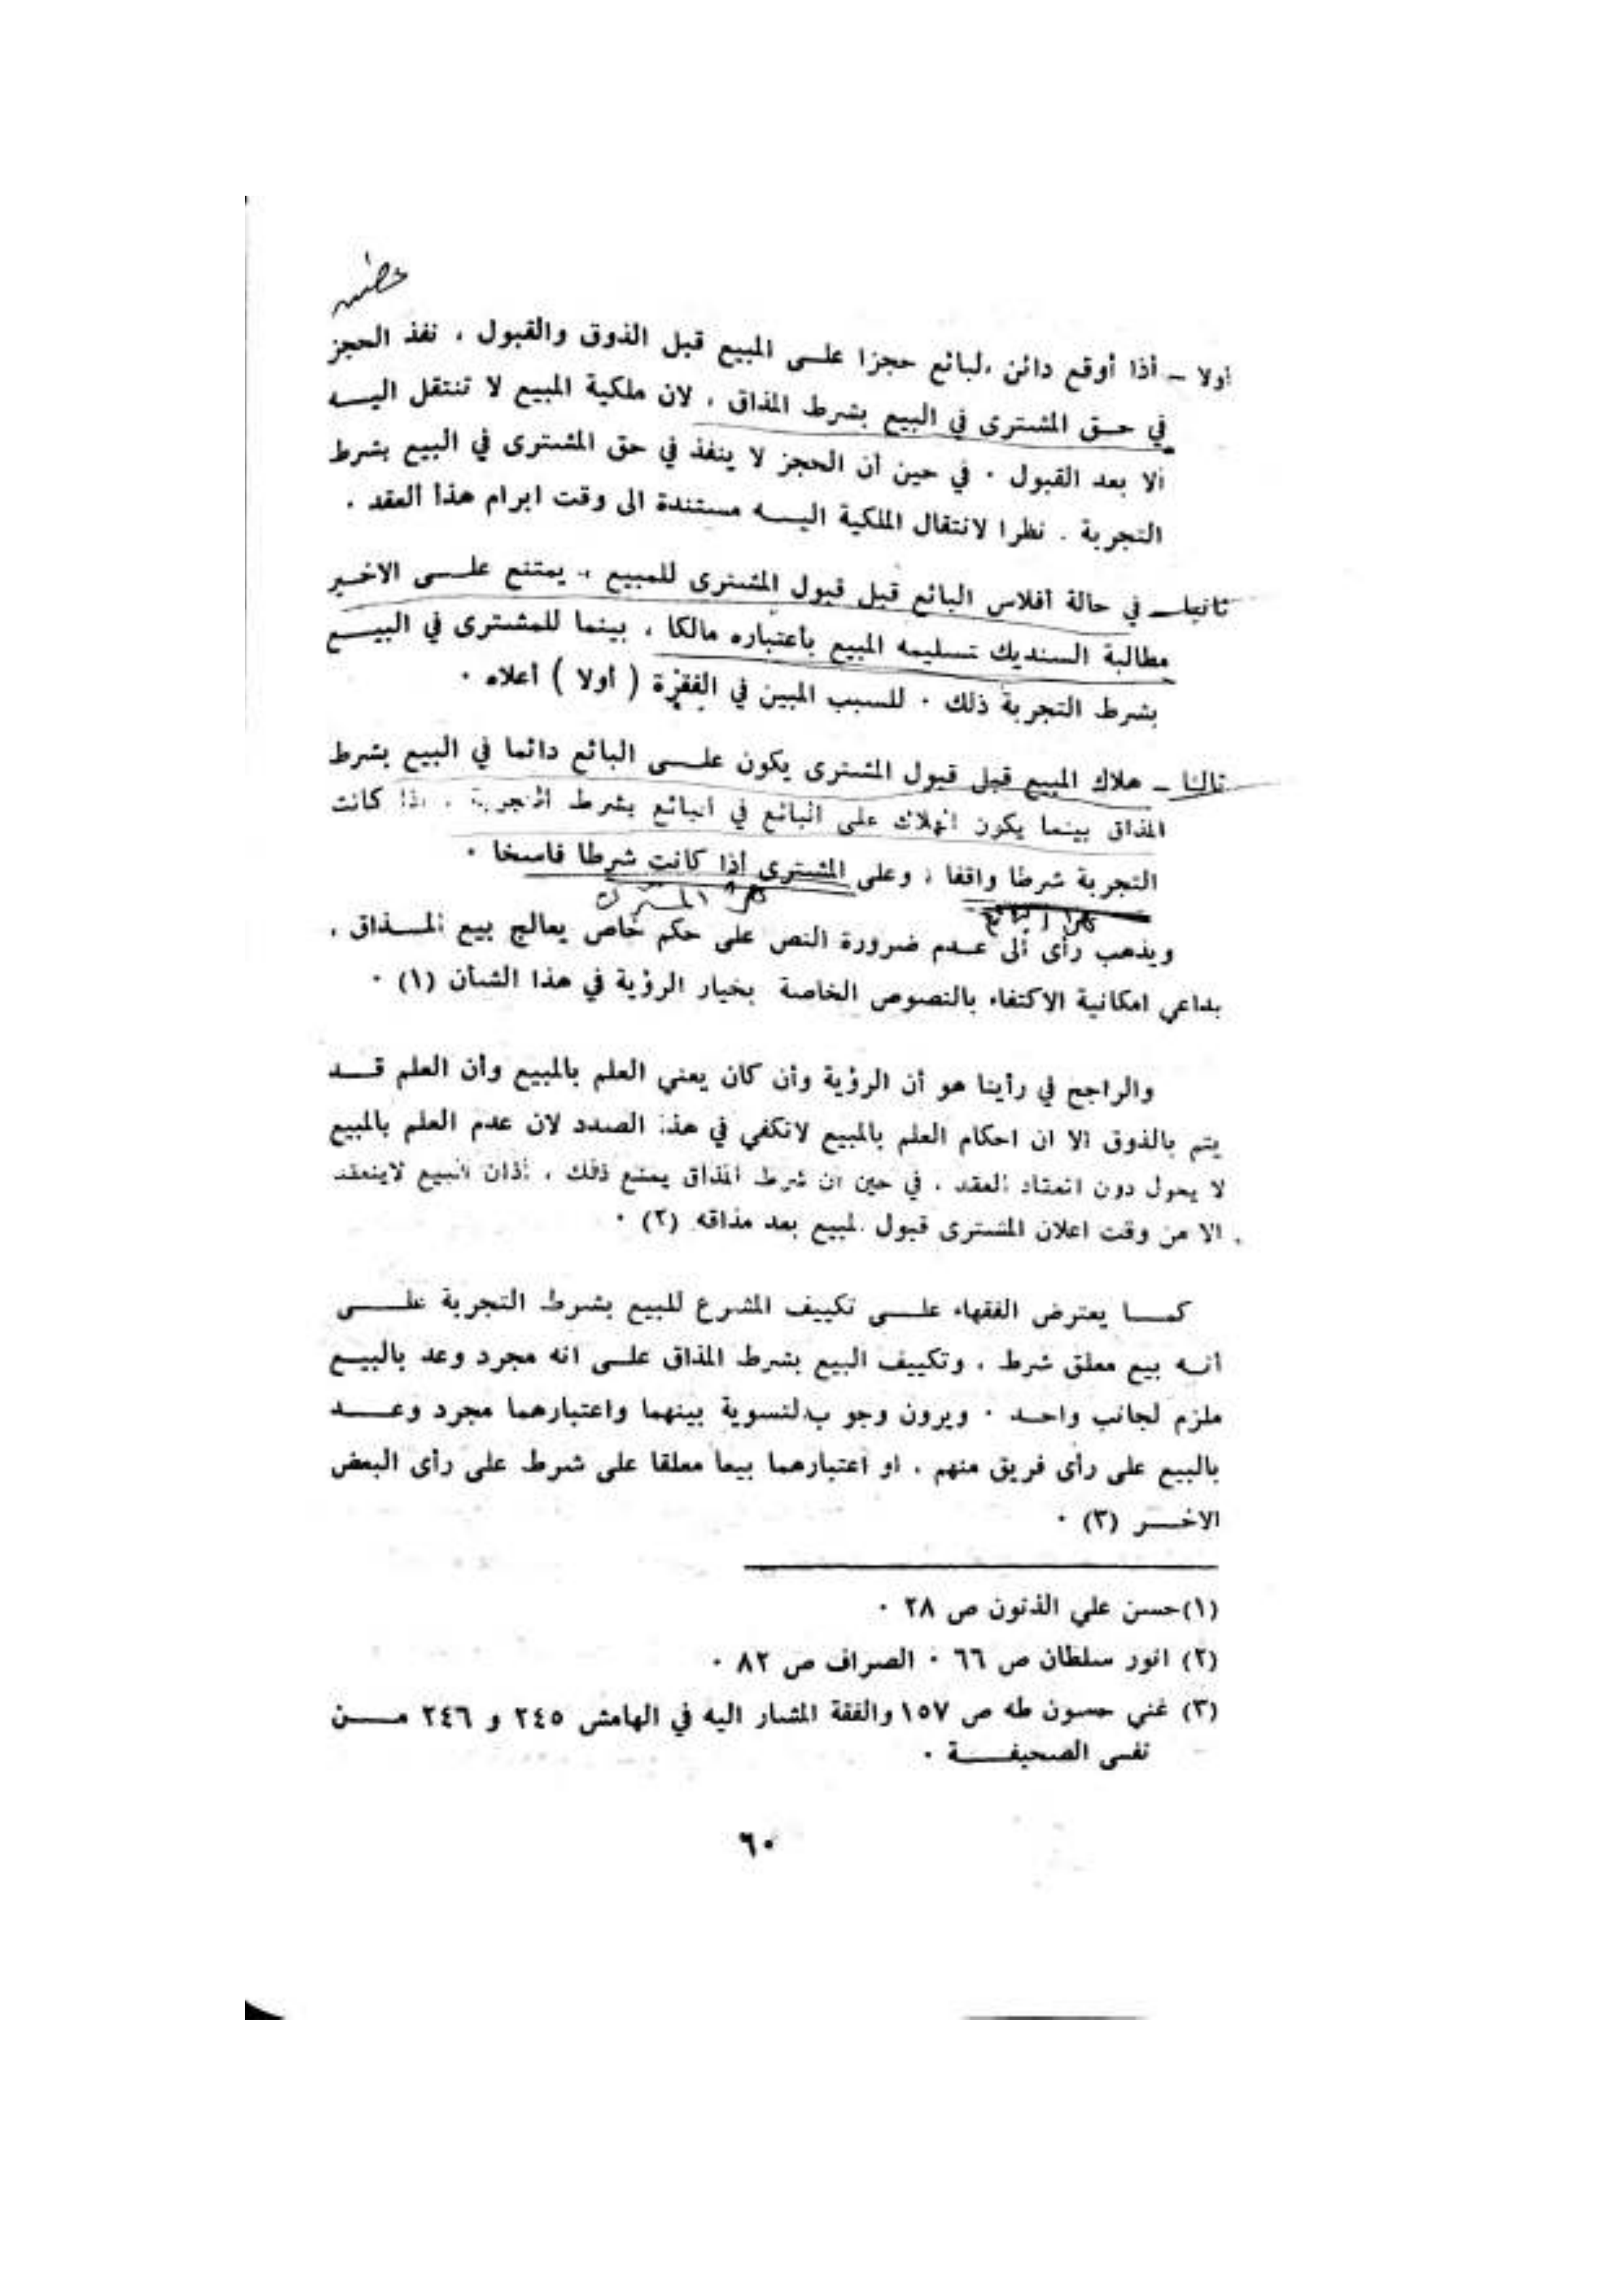 أولا ــ أذا أوقع دائن البائع حجزا علـــى المبيع قبل الذوق والقبول ، نفذ الحجز
في حـــق المشترى في البيع بشرط المذاق ، لان ملكية المبيع لا تنتقل اليـــه
ألا بعد القبول ٠ في حين أن الحجز لا ينفذ في حق المشترى في البيع بشرط
التجربة . نظرا لانتقال الملكية اليـــه مستندة الى وقت ابرام هذا العقد .
ثانيا ــ في حالة أفلاس البائع قبل قبول المشترى للمبيع ، يمتنع علـــى الاخير
مطالبة السنديك تسليمه المبيع بأعتباره مالكا ، بينما للمشترى في البيـــع
بشرط التجربة ذلك ٠ للسبب المبين في الفقرة ( أولا ) أعلاه ٠
ثالثا ــ هلاك المبيع قبل قبول المشترى يكون علـــى البائع دائما في البيع بشرط
المذاق بينما يكون الهلاك على البائع في البائع بشرط التجربة ، اذا كانت
التجربة شرطا واقفا ، وعلى المشترى أذا كانت شرطا فاسخا ٠
ويذهب رأى ألى عـــدم ضرورة النص على حكم خاص يعالج بيع المـــذاق ،
بداعي امكانية الاكتفاء بالنصوص الخاصة بخيار الرؤية في هذا الشأن (١) ٠
والراجح في رأينا هو أن الرؤية وأن كان يعني العلم بالمبيع وأن العلم قـــد
يتم بالذوق الا ان احكام العلم بالمبيع لاتكفي في هذا الصدد لان عدم العلم بالمبيع
لا يحول دون انعقاد العقد . في حين ان شرط المذاق يمنع ذلك ، أذان البيع لاينعقد
الا من وقت اعلان المشترى قبول المبيع بعد مذاقه (٢) ٠
كمـــا يعترض الفقهاء علـــى تكييف المشرع للبيع بشرط التجربة علـــى
أنـــه بيع معلق شرط ، وتكييف البيع بشرط المذاق علـــى انه مجرد وعد بالبيـــع
ملزم لجانب واحـــد ٠ ويرون وجو ب التسوية بينهما واعتبارهما مجرد وعـــد
بالبيع على رأى فريق منهم . او اعتبارهما بيعا معلقا على شرط على رأى البعض
الاخـــر (٣) ٠
(١) حسن علي الذنون ص ٢٨ ٠
(٢) انور سلطان ص ٦٦ ٠ الصراف ص ٨٢ ٠
(٣) غني حسون طه ص ١٥٧ والفقة المشار اليه في الهامش ٢٤٥ و ٢٤٦ مـــن
نفس الصحيفـــة ٠
٦٠